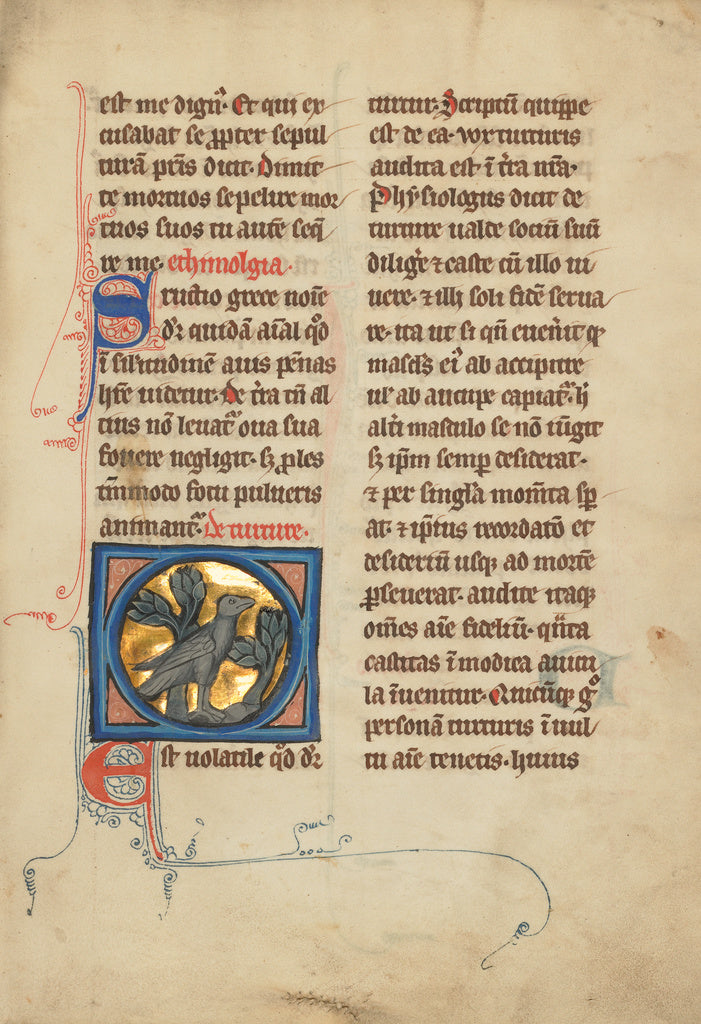 est me dignꝰ. Et qui ex
cusabat se ꝓpter sepul
turā pr̄is dicit. Dimit
te mortuos sepelire mor
tuos suos tu autē seq̄
re me. ethimolgia.
Structio grece noīe
dr̄ quidā aīal qd̄
ī sil'itudinē auis pēnas
hr̄e uidetur. De tr̄a tn̄ al
tius nō leuat᷑ oua sua
fouere negligit. sꝫ ꝓles
tm̄modo fotu pulueris
animant᷑. De turture.
Est uolatile qd̄ dr̄
turtur. Scriptū quippe
est de ea. vox turturis
audita est ī tr̄a nr̄a.
Phẏsiologus dicit de
turture ualde sociū suū
dilig̓e ⁊ caste cū illo ui
uere. ⁊ illi soli fidē serua
re. ita ut si qn̄ euen̓it ꝙ
mascl's eiꝰ ab accipitre
ul' ab aucupe capiat᷑. h̄
alt̓i masculo se nō iūgit
sꝫ ip̄m semꝑ desiderat.
⁊ per singl'a mom̄ta sp̄
at. ⁊ ip̄ius recordatō et
desideriū usqꝫ ad mortē
ꝑseuerat. audite itaqꝫ
om̄es aīe fideliū. qn̄ta
castitas ī modica auicu
la īuenitur. Quicūqꝫ gͦ
personā turturis ī uul
tu aīe tenetis. huius